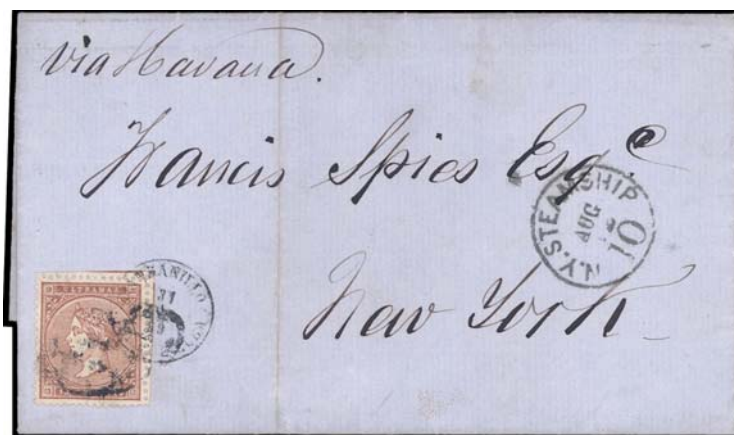 via Havana.
Francis Spies Esqe
New York
N.Y. STEAMSHIP 10
AUG
ULTRAMAR